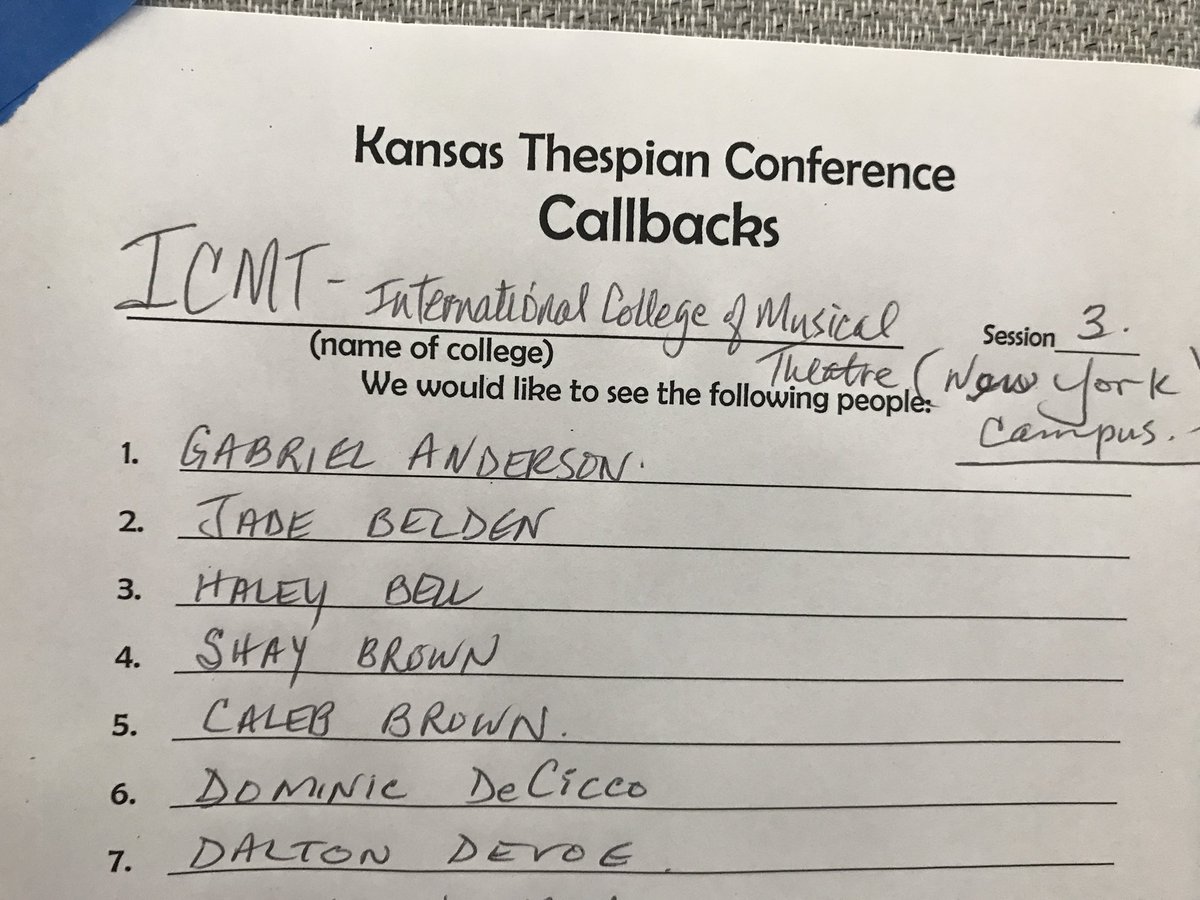 Kansas Thespian Conference
Callbacks
ICMT - International College of Musical
Theatre (New York
Campus.
(name of college)
Session 3.
We would like to see the following people:
1. GABRIEL ANDERSON.
2. JADE BELDEN
3. HALEY BELL
4. SHAY BROWN
5. CALEB BROWN.
6. DOMINIC DeCicco
7. DALTON DEVOE.